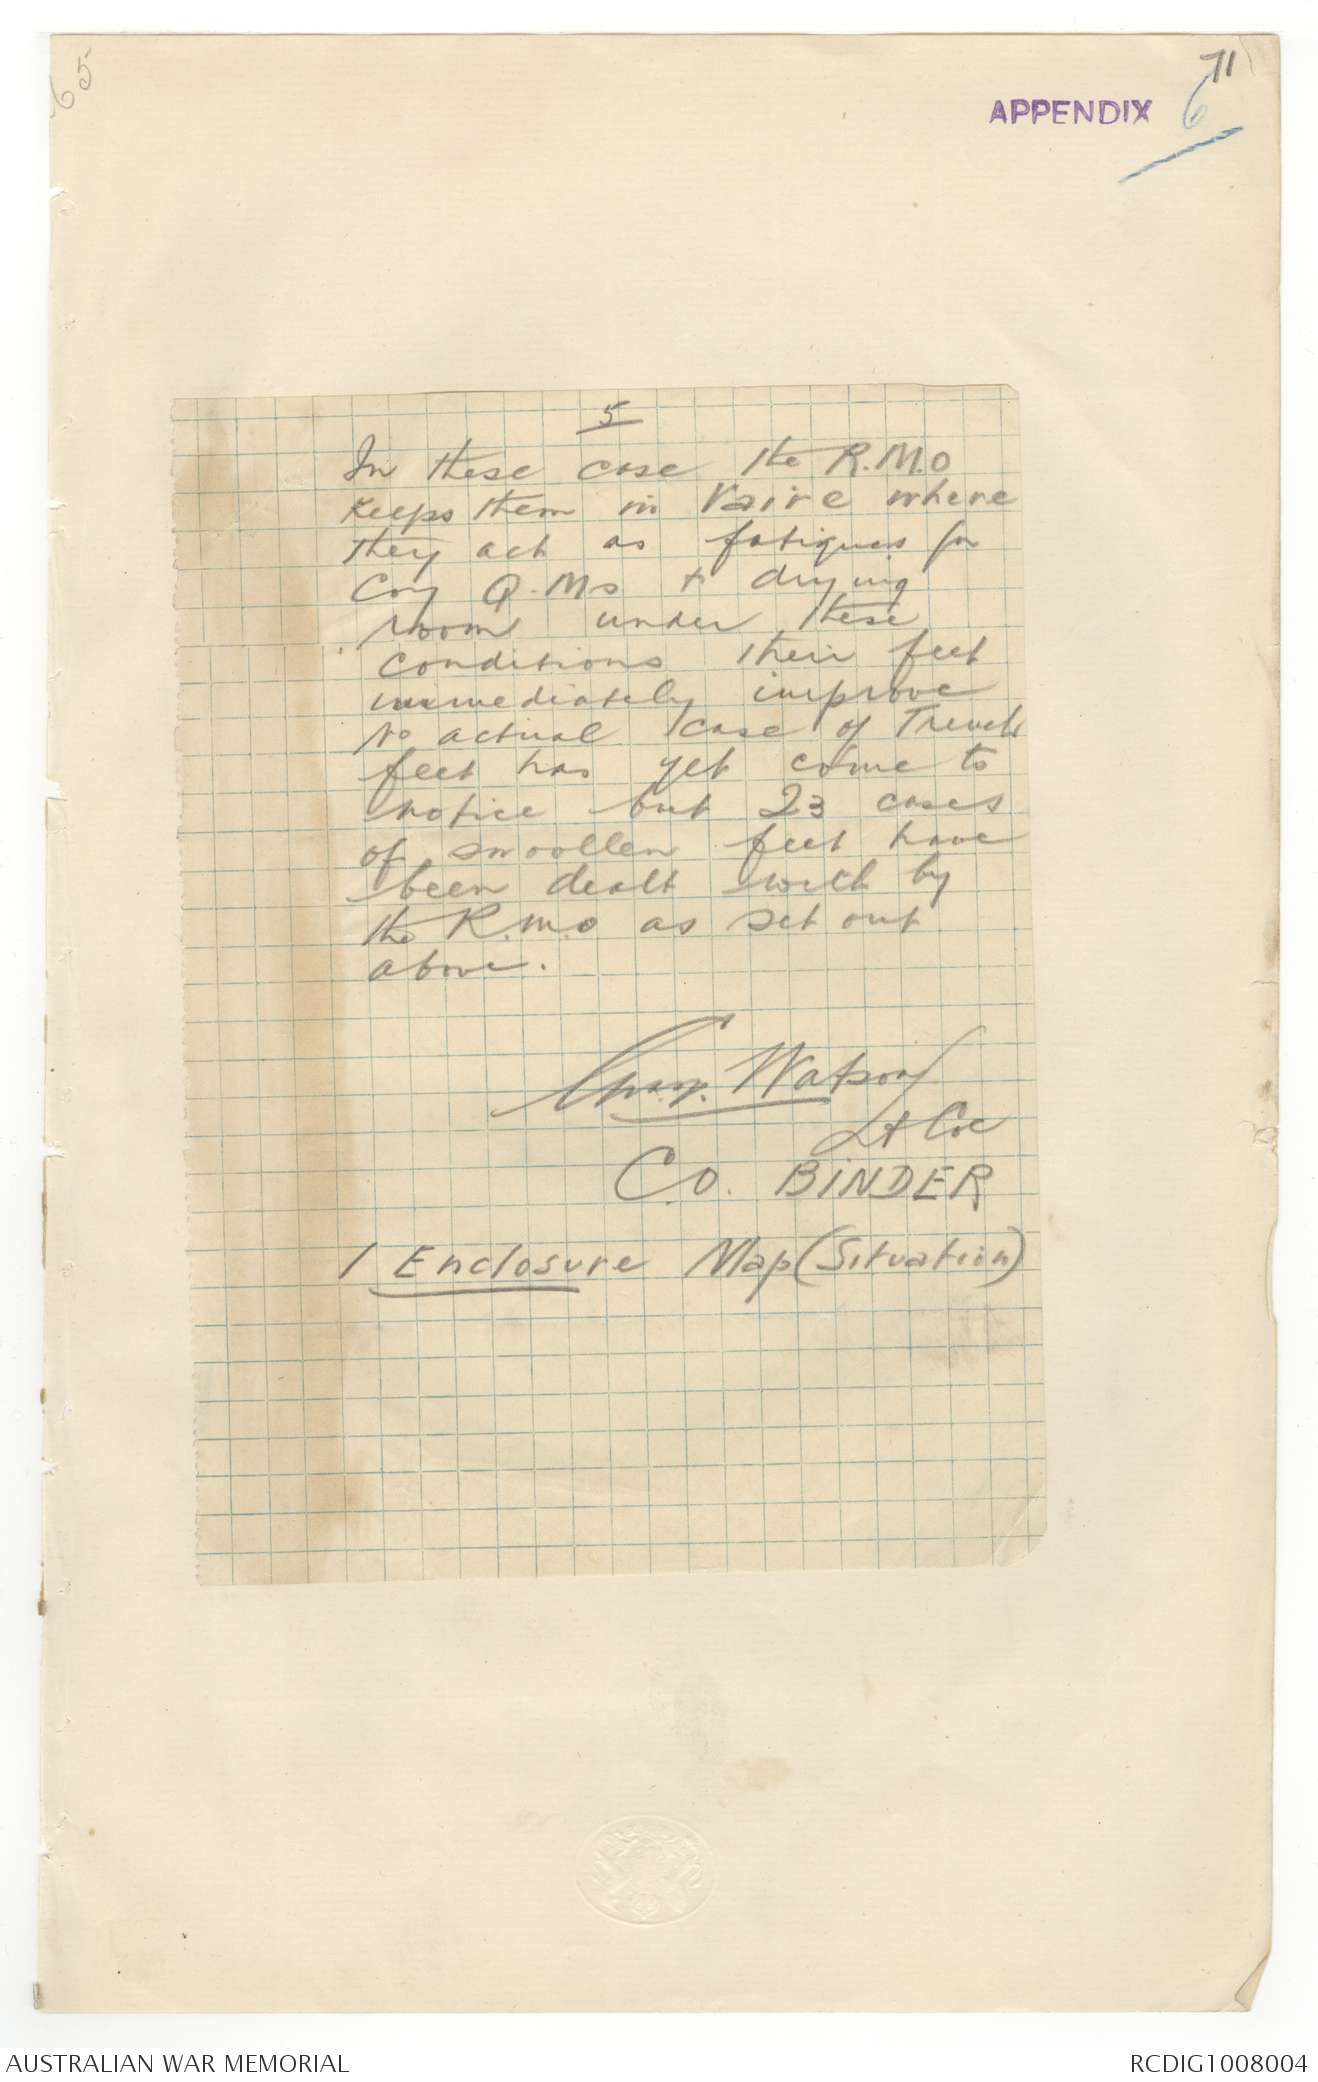 65
71
APPENDIX 6
5
In these case the R.M.O
keeps them in Vaire where
they act as fatigues for
Coy Q.Ms & drying
room under these
conditions their feet
immediately improve
No actual case of Trench
feet has yet come to
notice but 23 cases
of swollen feet have
been dealt with by
the R.M.O as set out
above.
Watson
Lt Col
C.O. BINDER
1 Enclosure Map (Situation)
AUSTRALIAN WAR MEMORIAL
RCDIG1008004